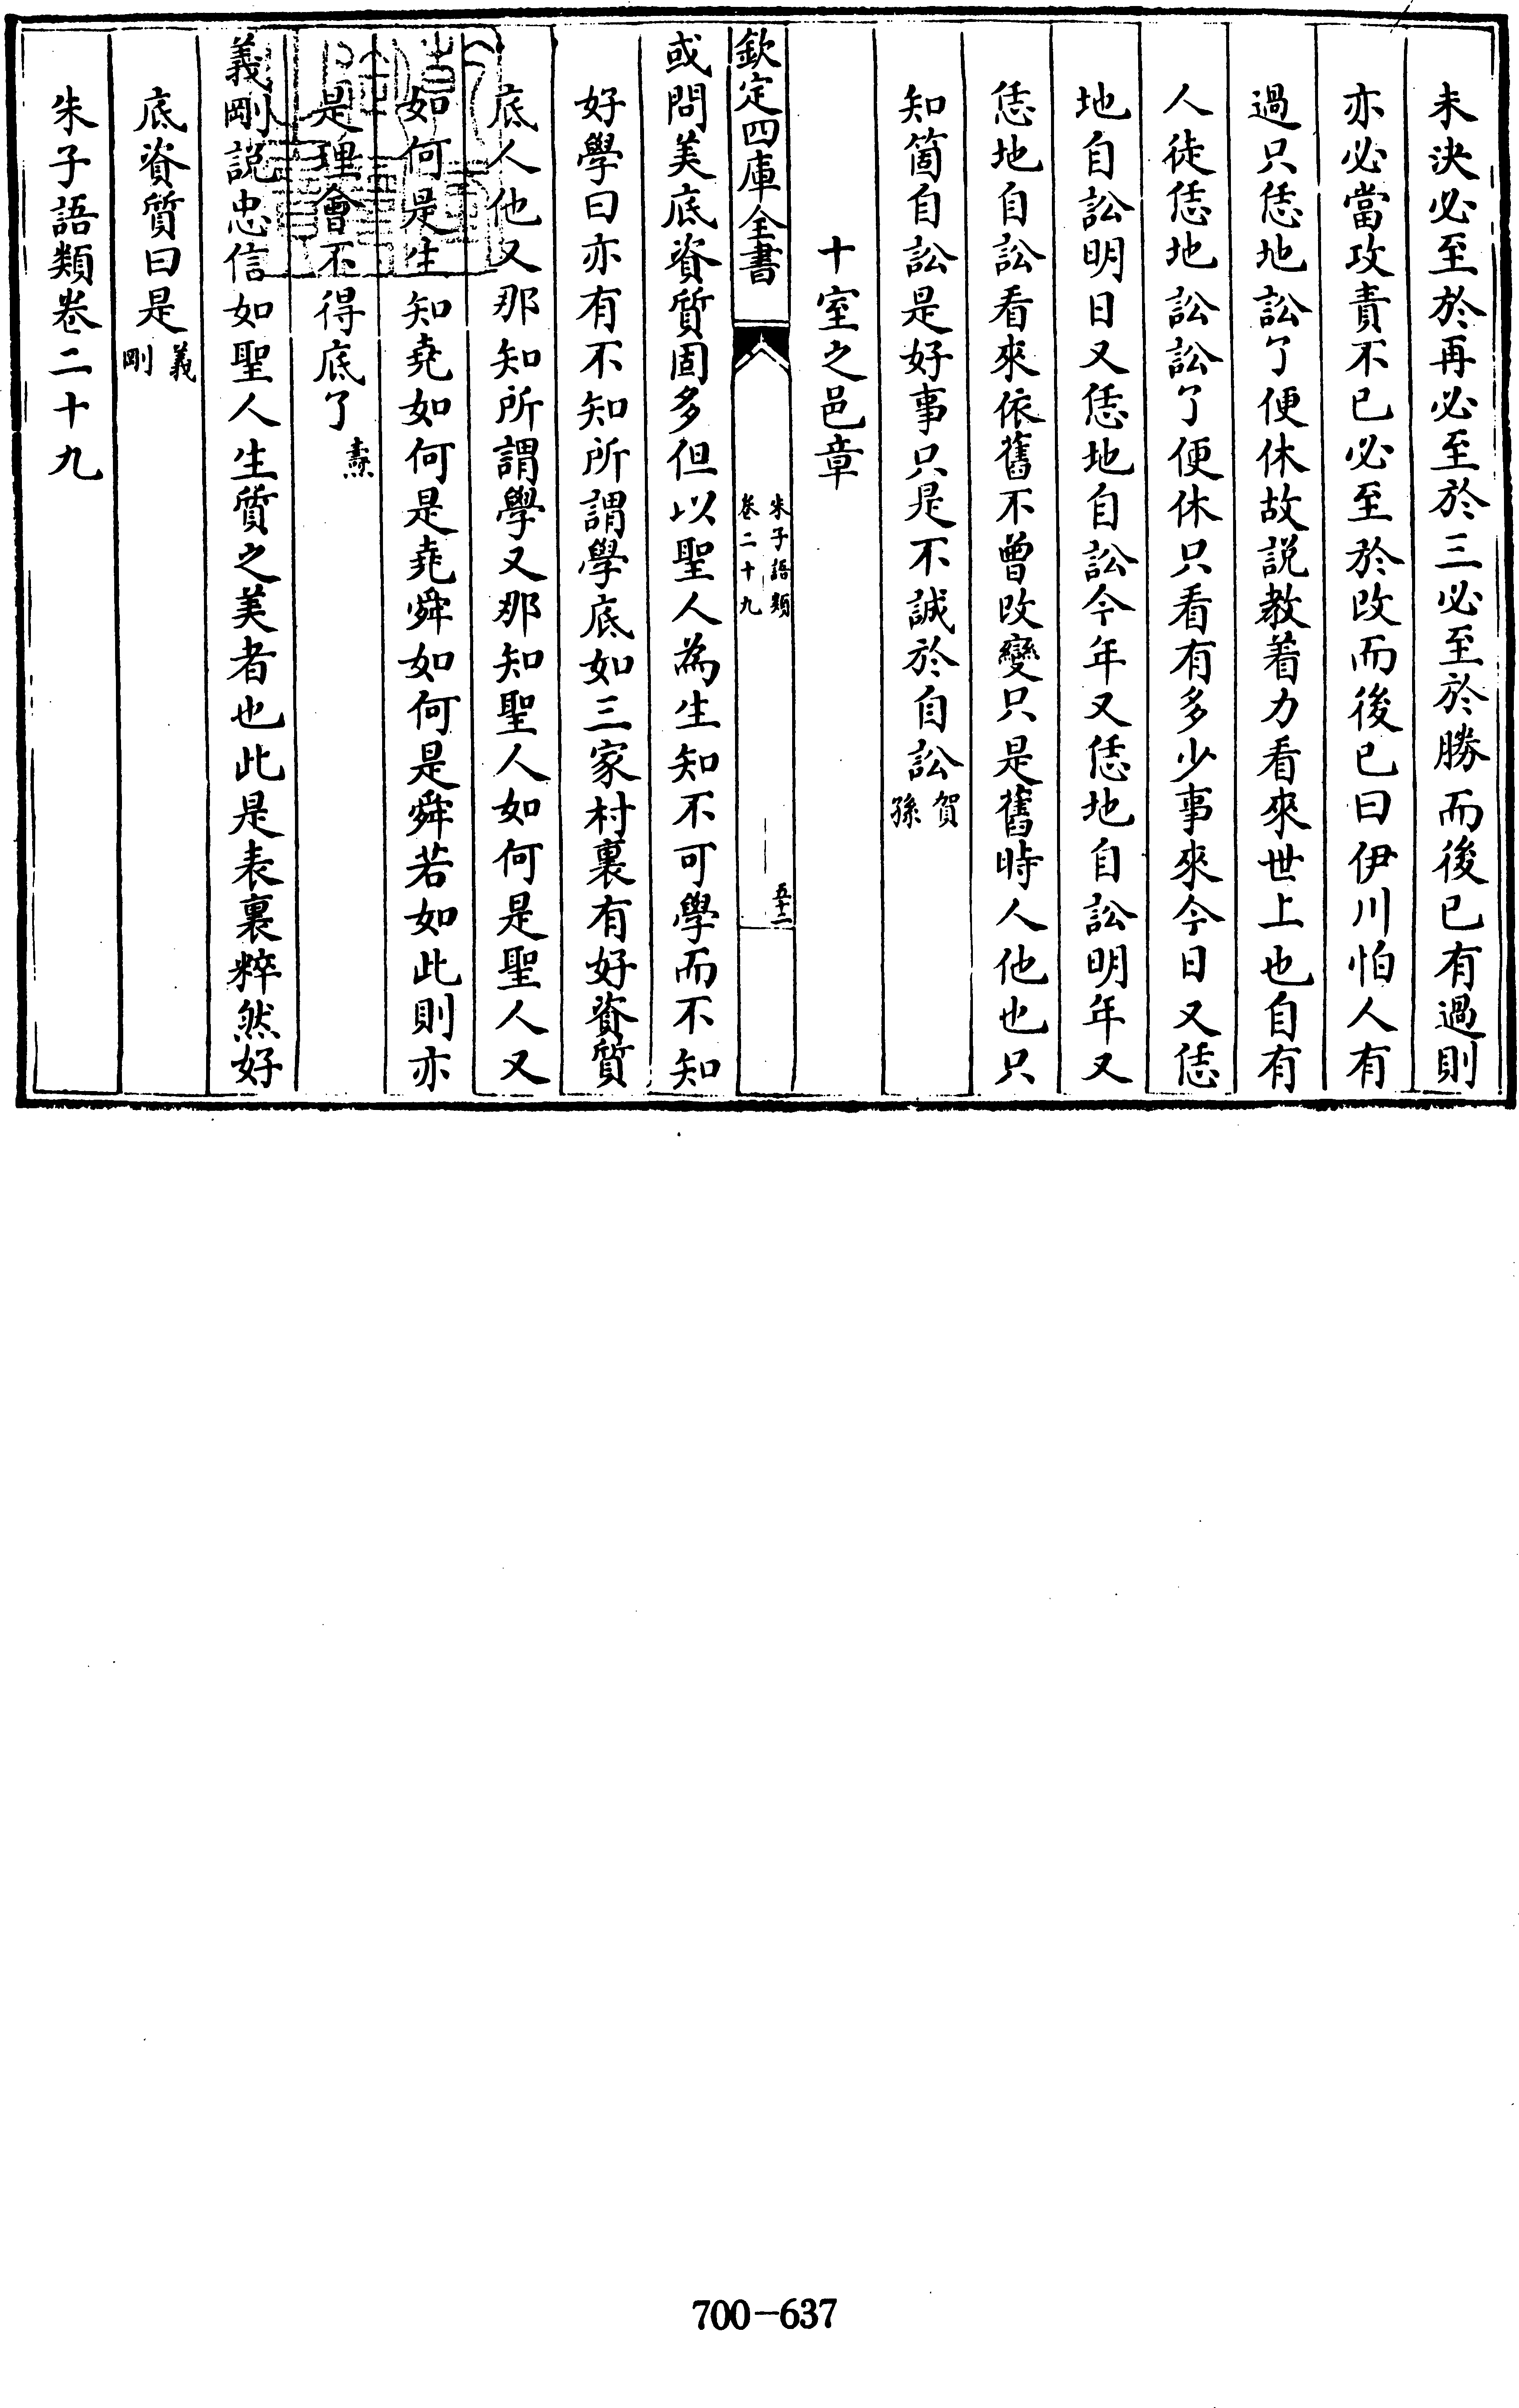 未決必至於再必至於三必至於勝而後已有過則
亦必當攻責不已必至於改而後已曰伊川怕人有
過只恁地訟了便休故説教着力看來世上也自有
人徒恁地訟訟了便休只看有多少事來今日又恁
地自訟明日又恁地自訟今年又恁地自訟明年又
恁地自訟看來依舊不曾改變只是舊時人他也只
知箇自訟是好事只是不誠於自訟賀孫
十室之邑章
欽定四庫全書
朱子語類
卷二十九
五十二
或問美底資質固多但以聖人為生知不可學而不知
好學曰亦有不知所謂學底如三家村裏有好資質
底人他又那知所謂學又那知聖人如何是聖人又
如何是生知堯如何是堯舜如何是舜若如此則亦
是理會不得底了燾
義剛説忠信如聖人生質之美者也此是表裏粹然好
底資質曰是義剛
朱子語類卷二十九
700-637